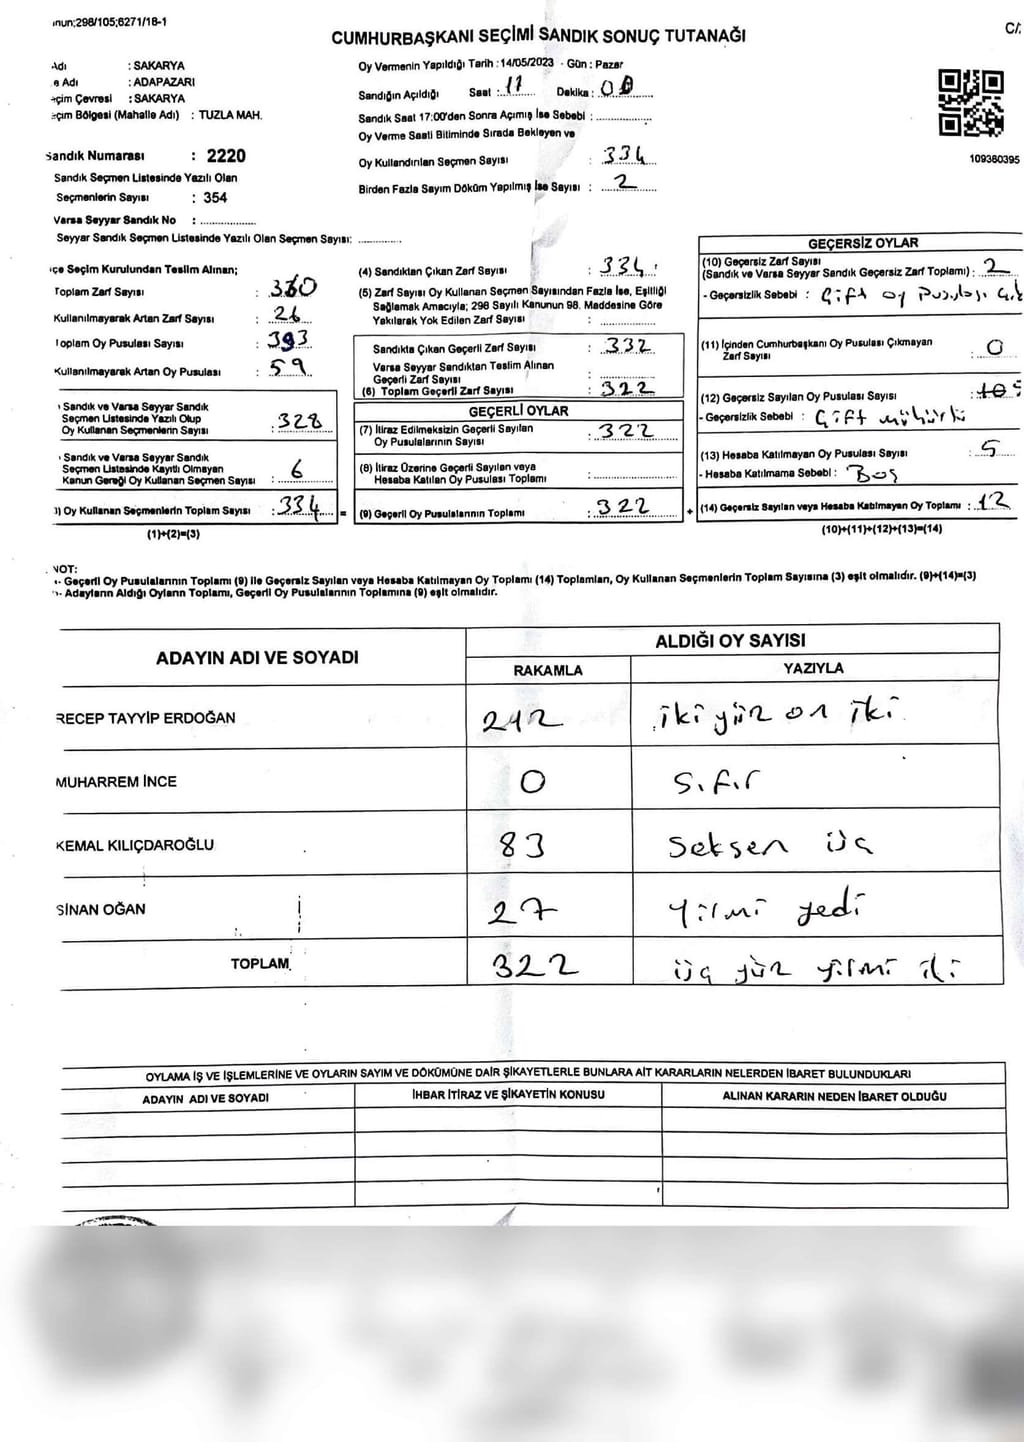 ınun;298/105;6271/18-1
CUMHURBAŞKANI SEÇİMİ SANDIK SONUÇ TUTANAĞI
Adı : SAKARYA
e Adı : ADAPAZARI
eçim Çevresi : SAKARYA
eçim Bölgesi (Mahalle Adı) : TUZLA MAH.
Sandık Numarası : 2220
Sandık Seçmen Listesinde Yazılı Olan
Seçmenlerin Sayısı : 354
Varsa Seyyar Sandık No :
Seyyar Sandık Seçmen Listesinde Yazılı Olan Seçmen Sayısı:
Oy Vermenin Yapıldığı Tarih :14/05/2023 - Gün : Pazar
Sandığın Açıldığı Saat : 17 Dakika : 00
Sandık Saat 17:00'den Sonra Açımış İse Sebebi :
Oy Verme Saati Bitiminde Sırada Bekleyen ve
Oy Kullandırılan Seçmen Sayısı : 334
Birden Fazla Sayım Döküm Yapılmış İse Sayısı : 2
109360395
ıçe Seçim Kurulundan Teslim Alınan;
Toplam Zarf Sayısı : 360
Kullanılmayarak Artan Zarf Sayısı : 26
Toplam Oy Pusulası Sayısı : 393
Kullanılmayarak Artan Oy Pusulası : 59
Sandık ve Varsa Seyyar Sandık
Seçmen Listesinde Yazılı Olup
Oy Kullanan Seçmenlerin Sayısı : 328
Sandık ve Varsa Seyyar Sandık
Seçmen Listesinde Kayıtlı Olmayan
Kanun Gereği Oy Kullanan Seçmen Sayısı : 6
3) Oy Kullanan Seçmenlerin Toplam Sayısı : 334 =
(1)+(2)=(3)
(4) Sandıktan Çıkan Zarf Sayısı : 334
(5) Zarf Sayısı Oy Kullanan Seçmen Sayısından Fazla İse, Eşitliği
Sağlamak Amacıyla; 298 Sayılı Kanunun 98. Maddesine Göre
Yakılarak Yok Edilen Zarf Sayısı :
Sandıkta Çıkan Geçerli Zarf Sayısı : 332
Varsa Seyyar Sandıktan Teslim Alınan
Geçerli Zarf Sayısı :
(6) Toplam Geçerli Zarf Sayısı : 322
GEÇERLİ OYLAR
(7) İtiraz Edilmeksizin Geçerli Sayılan
Oy Pusulalarının Sayısı : 322
(8) İtiraz Üzerine Geçerli Sayılan veya
Hesaba Katılan Oy Pusulası Toplamı :
(9) Geçerli Oy Pusulalarının Toplamı : 322 +
GEÇERSİZ OYLAR
(10) Geçersiz Zarf Sayısı
(Sandık ve Varsa Seyyar Sandık Geçersiz Zarf Toplamı) : 2
- Geçersizlik Sebebi : Çift oy Pusulası
(11) İçinden Cumhurbaşkanı Oy Pusulası Çıkmayan
Zarf Sayısı : 0
(12) Geçersiz Sayılan Oy Pusulası Sayısı : 10 5
- Geçersizlik Sebebi : Çift mühürlü
(13) Hesaba Katılmayan Oy Pusulası Sayısı : 5
- Hesaba Katılmama Sebebi : Boş
(14) Geçersiz Sayılan veya Hesaba Katılmayan Oy Toplamı : 12
(10)+(11)+(12)+(13)=(14)
NOT:
- Geçerli Oy Pusulalarının Toplamı (9) ile Geçersiz Sayılan veya Hesaba Katılmayan Oy Toplamı (14) Toplamları, Oy Kullanan Seçmenlerin Toplam Sayısına (3) eşit olmalıdır. (9)+(14)=(3)
- Adayların Aldığı Oyların Toplamı, Geçerli Oy Pusulalarının Toplamına (9) eşit olmalıdır.
ADAYIN ADI VE SOYADI
ALDIĞI OY SAYISI
RAKAMLA YAZIYLA
RECEP TAYYİP ERDOĞAN 212 iki yüz on iki
MUHARREM İNCE 0 Sıfır
KEMAL KILIÇDAROĞLU 83 Seksen üç
SİNAN OĞAN 27 Yirmi yedi
TOPLAM 322 üç yüz yirmi iki
OYLAMA İŞ VE İŞLEMLERİNE VE OYLARIN SAYIM VE DÖKÜMÜNE DAİR ŞİKAYETLERLE BUNLARA AİT KARARLARIN NELERDEN İBARET BULUNDUKLARI
ADAYIN ADI VE SOYADI İHBAR İTİRAZ VE ŞİKAYETİN KONUSU ALINAN KARARIN NEDEN İBARET OLDUĞU